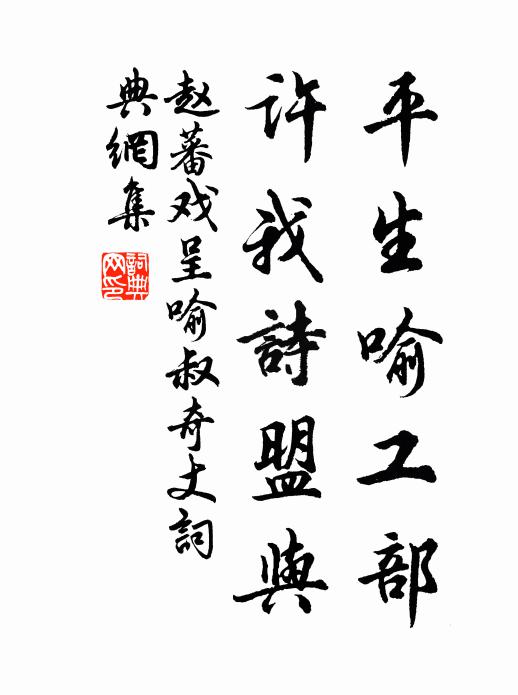 平生喻工部
许我詩盟與
赵蕃戏呈喻叔奇丈詞
典網集
詞典网印